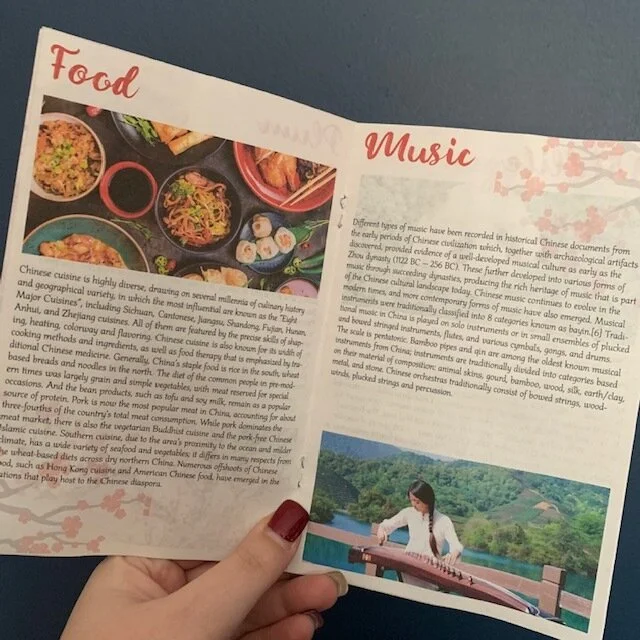 Food
Chinese cuisine is highly diverse, drawing on several millennia of culinary history
and geographical variety, in which the most influential are known as the "Eight
Major Cuisines", including Sichuan, Cantonese, Jiangsu, Shandong, Fujian, Hunan,
Anhui, and Zhejiang cuisines. All of them are featured by the precise skills of shap-
ing, heating, colorway and flavoring. Chinese cuisine is also known for its width of
cooking methods and ingredients, as well as food therapy that is emphasized by tra-
ditional Chinese medicine. Generally, China's staple food is rice in the south, wheat
based breads and noodles in the north. The diet of the common people in pre-mod-
ern times was largely grain and simple vegetables, with meat reserved for special
occasions. And the bean products, such as tofu and soy milk, remain as a popular
source of protein. Pork is now the most popular meat in China, accounting for about
three-fourths of the country's total meat consumption. While pork dominates the
meat market, there is also the vegetarian Buddhist cuisine and the pork-free Chinese
Islamic cuisine. Southern cuisine, due to the area's proximity to the ocean and milder
climate, has a wide variety of seafood and vegetables; it differs in many respects from
the wheat-based diets across dry northern China. Numerous offshoots of Chinese
ood, such as Hong Kong cuisine and American Chinese food, have emerged in the
ations that play host to the Chinese diaspora.
Music
Different types of music have been recorded in historical Chinese documents from
the early periods of Chinese civilization which, together with archaeological artifacts
discovered, provided evidence of a well-developed musical culture as early as the
Zhou dynasty (1122 BC – 256 BC). These further developed into various forms of
music through succeeding dynasties, producing the rich heritage of music that is part
of the Chinese cultural landscape today. Chinese music continues to evolve in the
modern times, and more contemporary forms of music have also emerged. Musical
instruments were traditionally classified into 8 categories known as bayin.[6] Tradi-
tional music in China is played on solo instruments or in small ensembles of plucked
and bowed stringed instruments, flutes, and various cymbals, gongs, and drums.
The scale is pentatonic. Bamboo pipes and qin are among the oldest known musical
instruments from China; instruments are traditionally divided into categories based
on their material of composition: animal skins, gourd, bamboo, wood, silk, earth/clay,
metal, and stone. Chinese orchestras traditionally consist of bowed strings, wood-
winds, plucked strings and percussion.